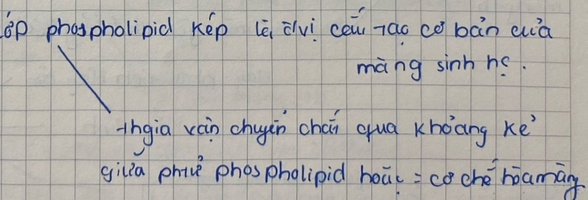 lớp phospholipid kép là đvị cấu tạo cơ bản của
màng sinh học.
thgia vận chuyển chất qua khoảng kẽ
giữa phtử phospholipid hoặc = cơ chế hòa màng